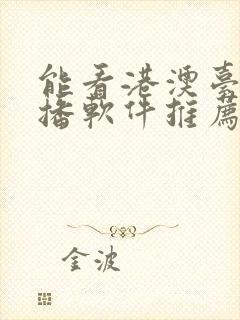 能看港澳臺
播軟件推薦
金波